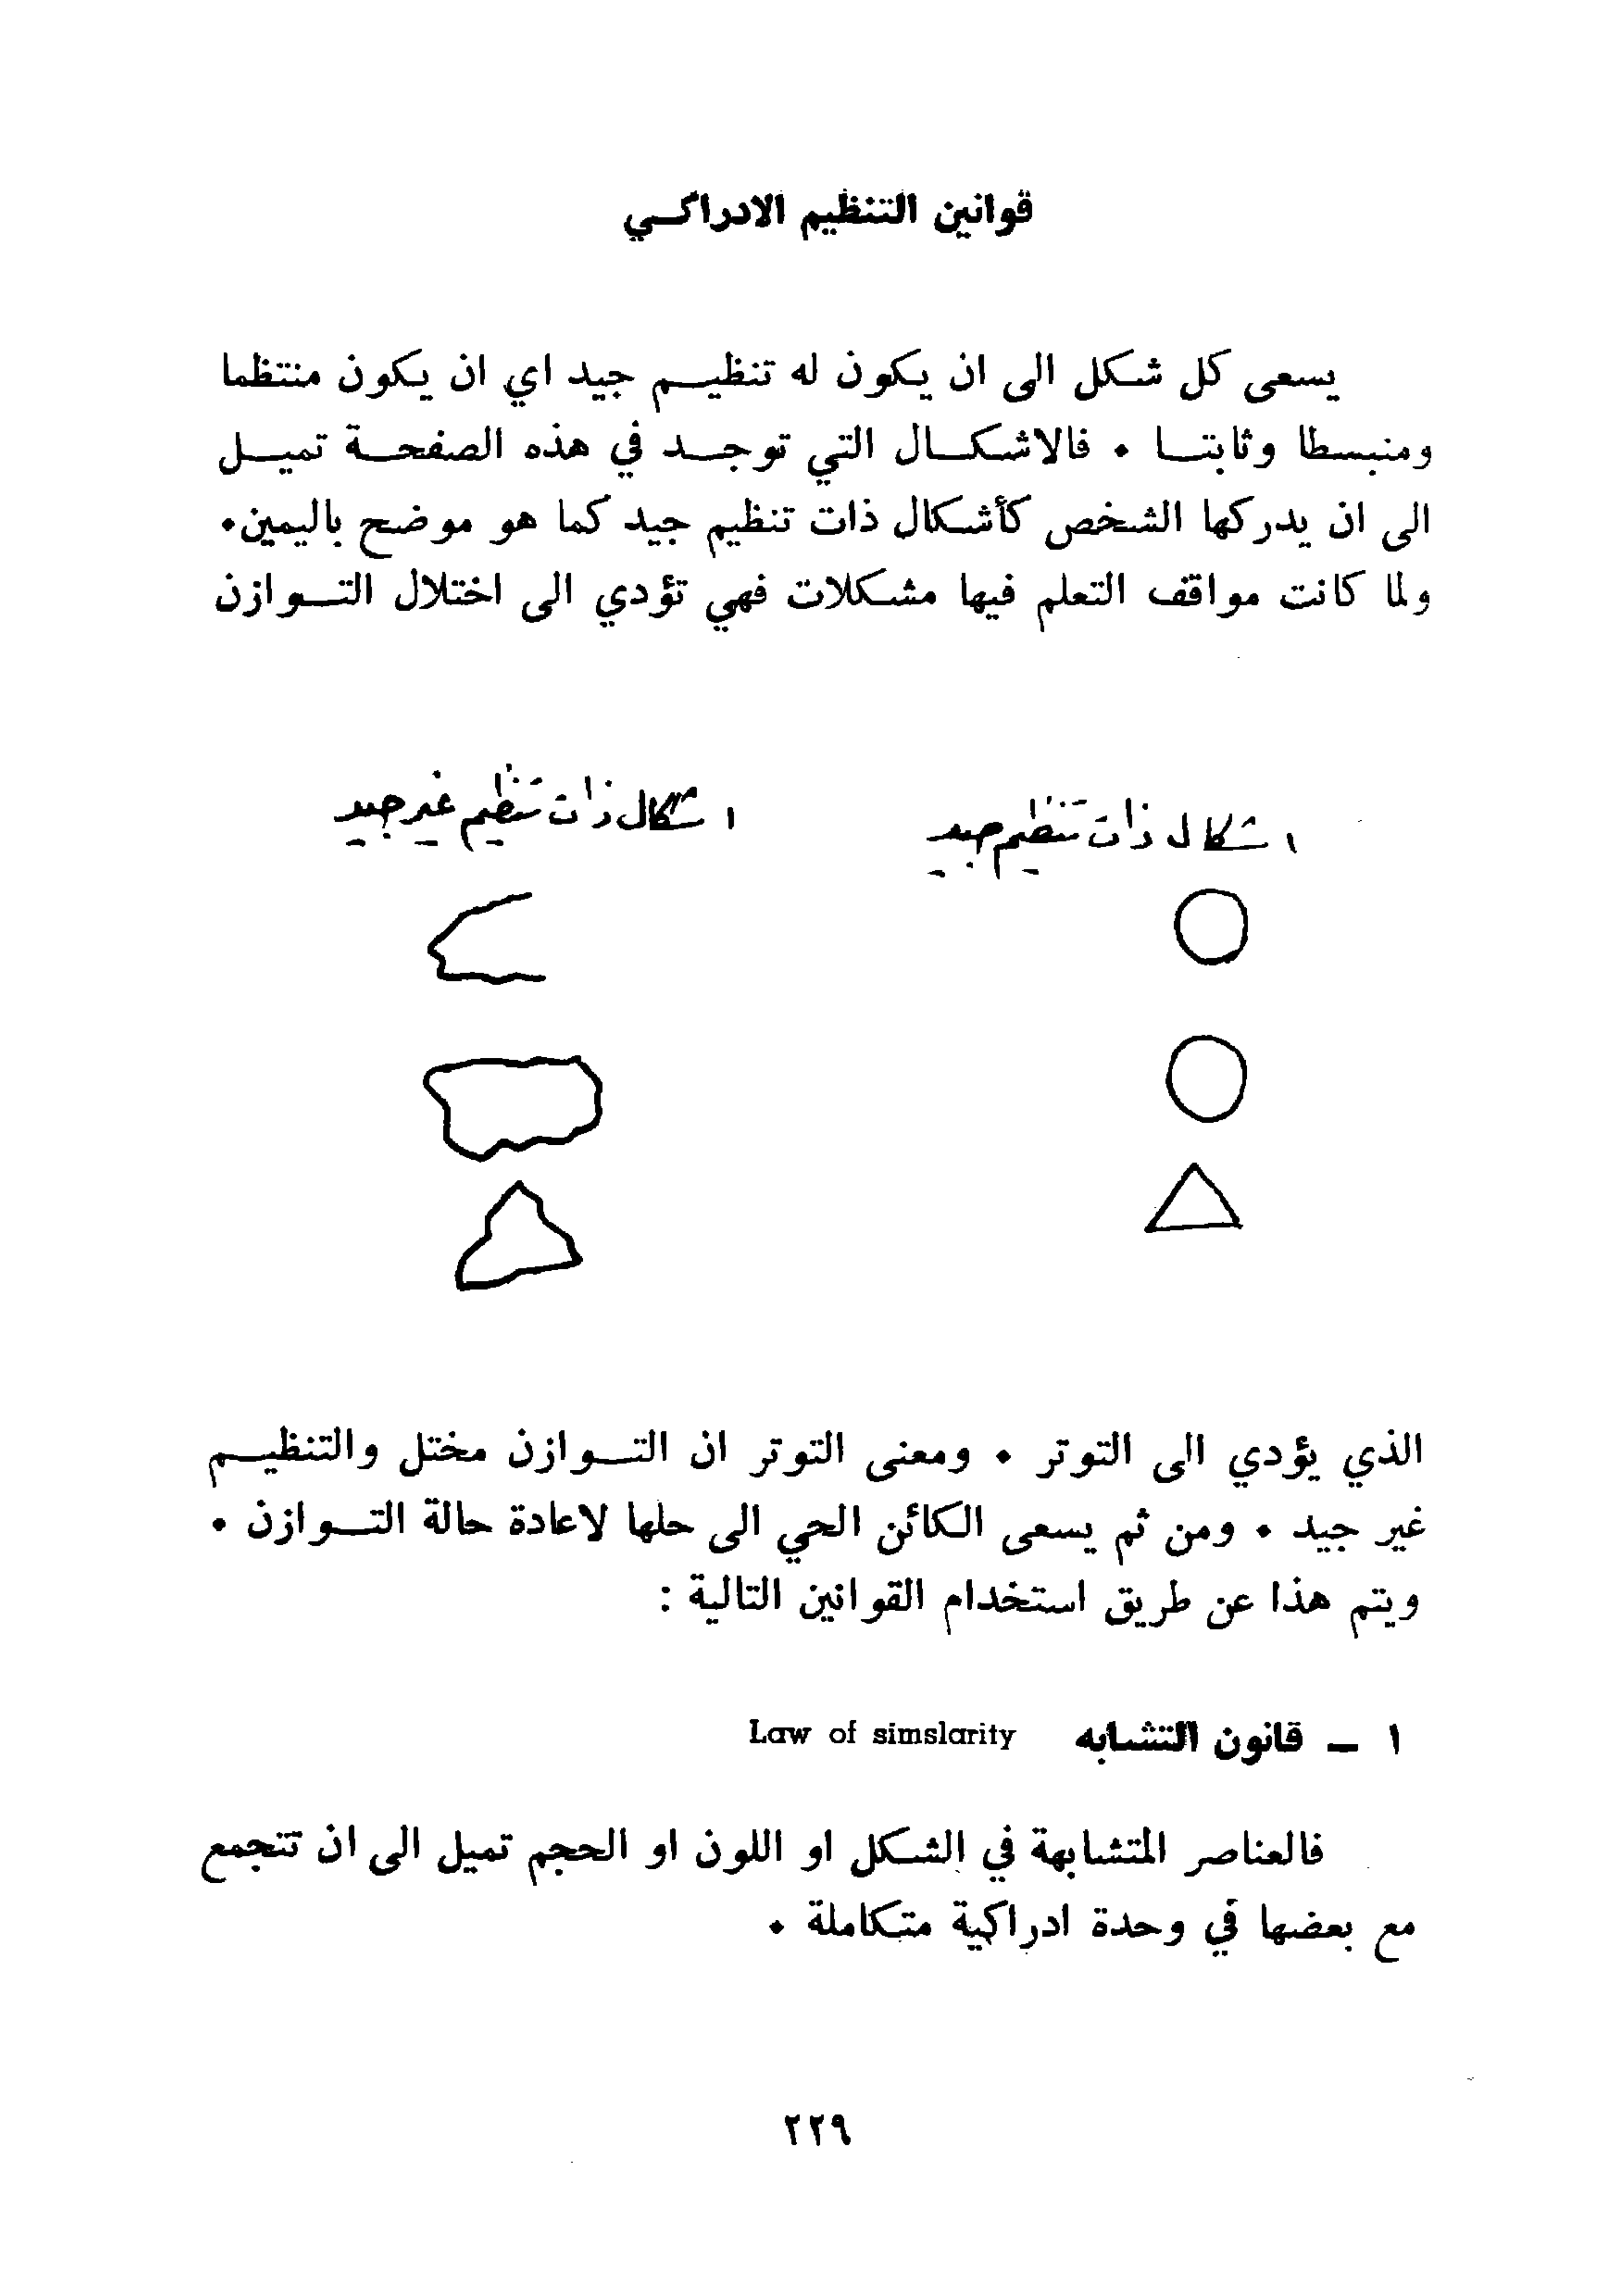 قوانين التنظيم الادراكي
يسعى كل شكل الى ان يكون له تنظيم جيد اي ان يكون منتظما
ومنبسطا وثابتا • فالاشكال التي توجد في هذه الصفحة تميل
الى ان يدركها الشخص كأشكال ذات تنظيم جيد كما هو موضح باليمين•
ولما كانت مواقف التعلم فيها مشكلات فهي تؤدي الى اختلال التوازن
اشكال ذات تنظيم جيد
اشكال ذات تنظيم غير جيد
الذي يؤدي الى التوتر • ومعنى التوتر ان التوازن مختل والتنظيم
غير جيد • ومن ثم يسعى الكائن الحي الى حلها لاعادة حالة التوازن •
ويتم هذا عن طريق استخدام القوانين التالية :
١ – قانون التشابه Law of simslarity
فالعناصر المتشابهة في الشكل او اللون او الحجم تميل الى ان تتجمع
مع بعضها في وحدة ادراكية متكاملة •
٢٢٩